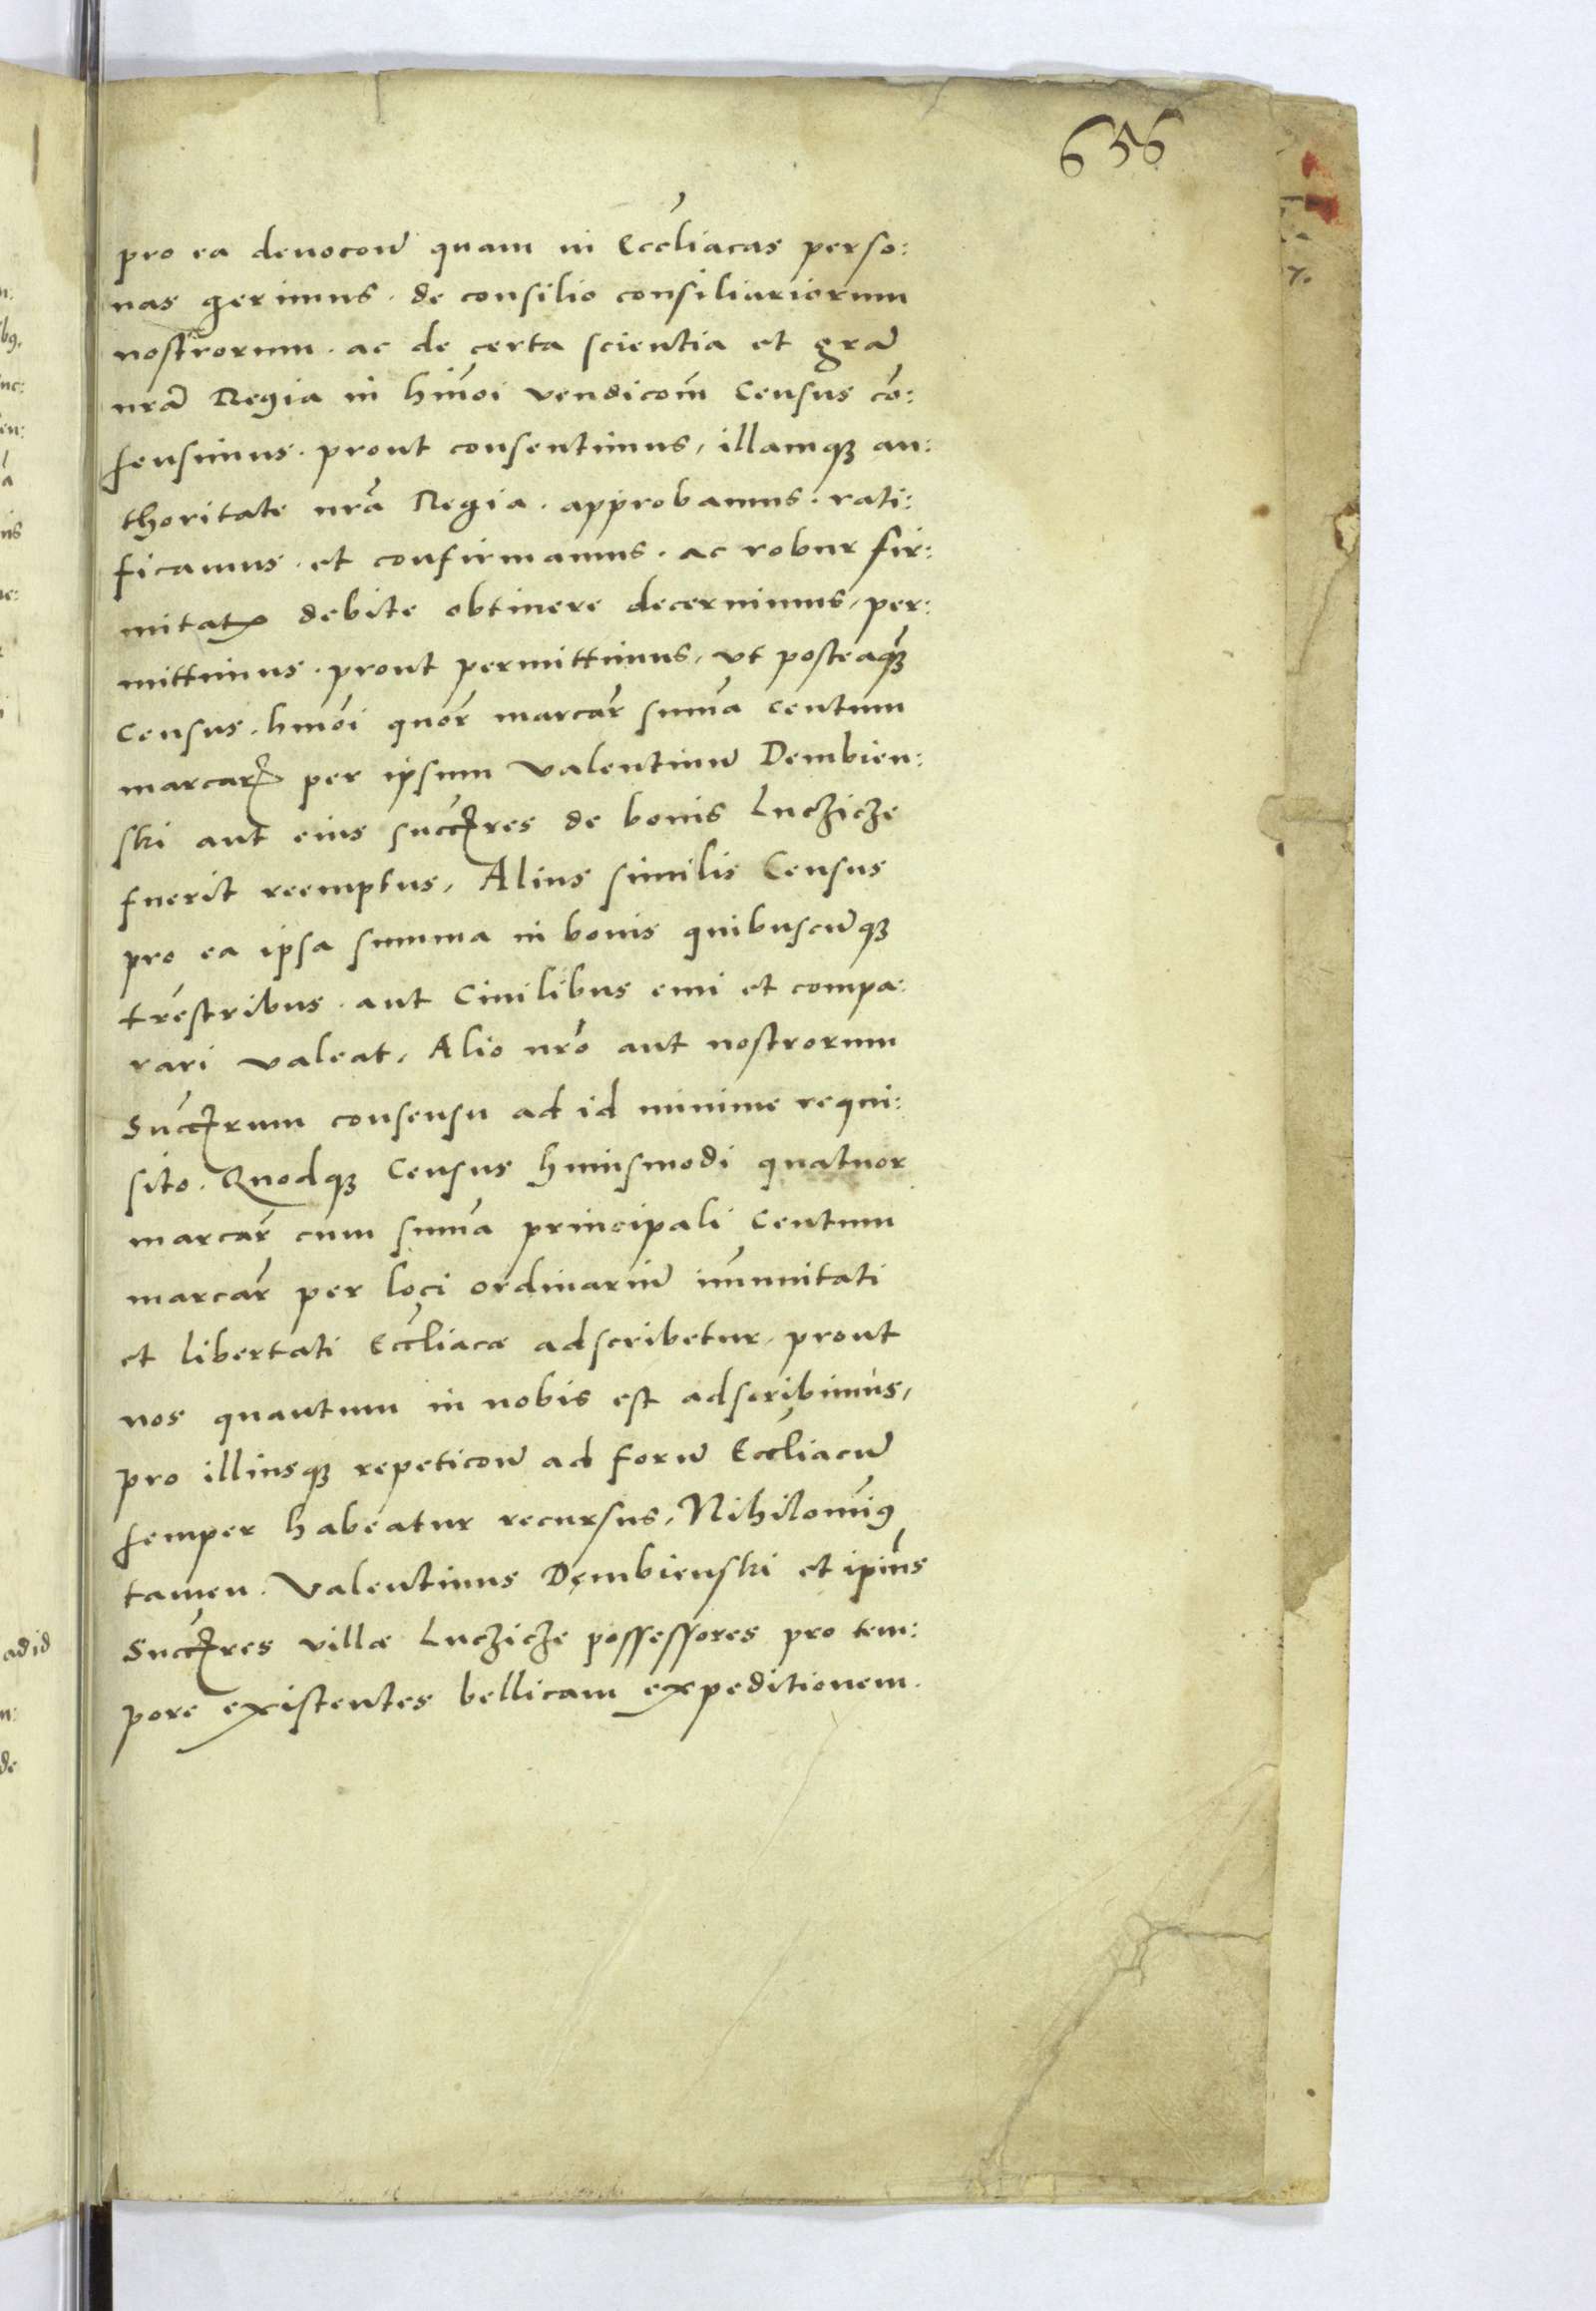 656
pro ea deuocoñ quam in Eccĺiacas perso:
nas gerimus. de consilio consiliariorum
nostrorum. ac de certa scientia et gra͠
nra͠ Regia in hm̃oi vendicom̃ Census cõ:
sensimus. prout consentimus, illamqȝ au:
thoritate nrã Regia. approbamus. rati:
ficamus. et confirmamus. ac robur fir:
mitatꝭ debite obtinere decernimus, per:
mittimus. prout permittimus, vt posteaqȝ̃
Census. hmõi quor̃ marcar̃ sum̃a centum
marcarꝭ per ipsum Valentinũ Dembien:
ski aut eius succr̃es de bonis Luczicze
fuerit reemptus, Alius similis Census
pro ea ipsa summa in bonis quibuscũqȝ
tr̃estribus. aut Ciuilibus emi et compa:
rari valeat, Alio nrõ aut nostrorum
Succr̃um consensu ad id minime requi:
sito. Quodqȝ Census huiusmodi quatuor
marcar̃ cum sum̃a principali Centum
marcar̃ per loci ordinariũ im̃unitati
et libertati Eccĺiacæ adscribetur, prout
nos quantum in nobis est adscribimus,
pro illiusqȝ repeticoñ ad forũ Eccĺiacũ
semper habeatur recursus, Nihilomĩꝰ
tamen. Valentinus Dembienski et ipiũs
Succr̃es villæ Luczicze possessores pro tem:
pore existentes bellicam expeditionem.
ad id